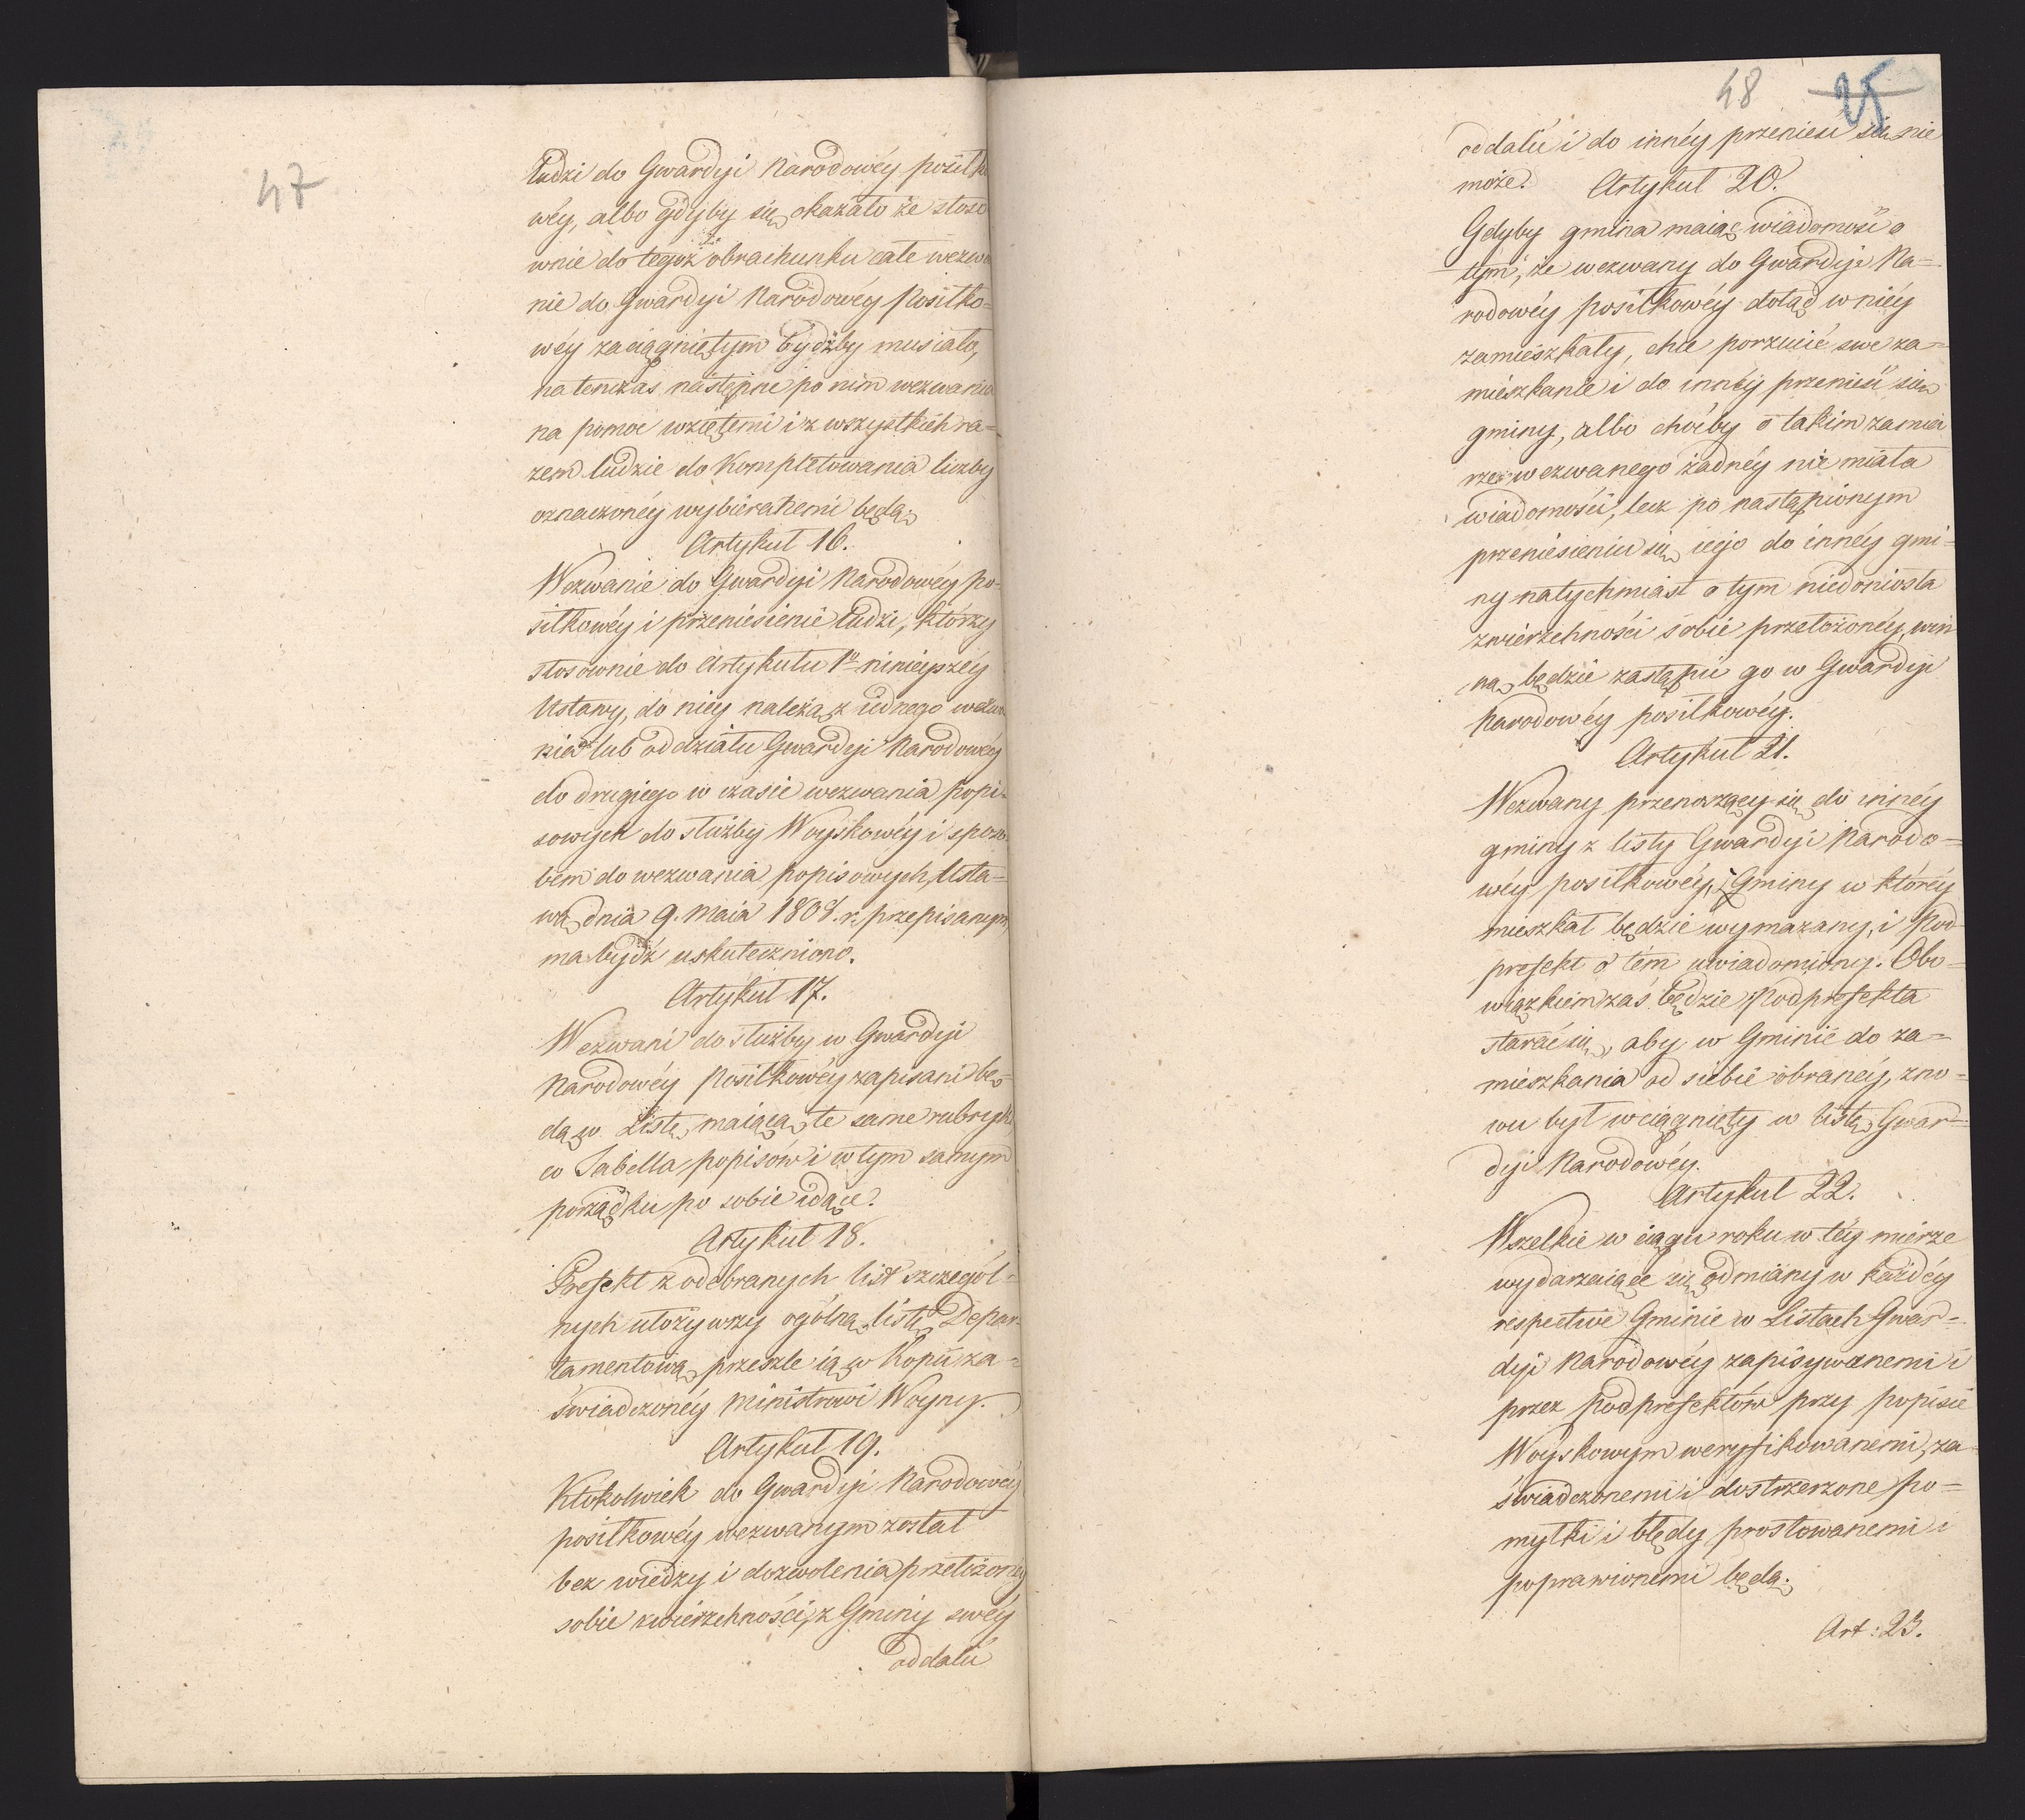 47
ludzi do Gwardyi Narodowéy posiłko
wéy, albo gdyby się okazało że stoso
wnie do tegoż obrachunku całe wezwa
nie do Gwardyi Narodowéy Posiłko=
wéy zaciągniętym bydźby musiało,
na tenczas następne po nim wezwania
na pomoc wziętemi i z wszystkich ra=
zem ludzie do kompletowania liczby
oznaczonéy wybieranemi będą.
Artykuł 16.
Wezwanie do Gwardyi Narodowéy po=
siłkowéy i przeniesienie ludzi, którzy
stosownie do Artykułu 1o ninieyszéy
Ustawy, do niéy należą z iednego wezwa
nia lub oddziału Gwardyi Narodowéy
do drugiego w czasie wezwania popi=
sowych do służby Woyskowéy i sposo
bem do wezwania popisowych, Usta=
wą dnia 9. Maia 1808. r. przepisanym,
ma bydź uskuteczniono.
Artykuł 17.
Wezwani do służby w Gwardyi
Narodowéy Posiłkowéy zapisani bę=
dą w Listę maiącą te same rubryki
co Tabella popisów i w tym samym
porządku po sobie idące.
Artykuł 18.
Prefekt z odebranych list szczegól=
nych ułożywszy ogólną listę Depar=
tamentową, przeszle ią w Kopii za=
świadczonéy Ministrowi Woyny.
Artykuł 19.
Ktokolwiek do Gwardyi Narodowéy
posiłkowéy wezwanym został
bez wiedzy i dozwolenia przełożonéy
sobie zwierzchności, z Gminy swéy
oddalić
48 25
oddalić i do innéy przenieść się nie
może. Artykuł 20.
Gdyby gmina maiąc wiadomość o
tym, że wezwany do Gwardyi Na=
rodowéy posiłkowéy dotąd w niéy
zamieszkały, chce porzucić swe za=
mieszkanie i do innéy przenieść się
gminy, albo choćby o takim zamia
rze wezwanego żadnéy nie miała
wiadomości, lecz po nastąpionym
przeniesieniu się iego do innéy gmi=
ny natychmiast o tym niedoniosła
zwierzchności sobie przełożonéy, win
na będzie zastąpić go w Gwardyi
Narodowéy posiłkowéy.
Artykuł 21.
Wezwany przenoszący się do innéy
gminy z listy Gwardyi Narodo=
wéy posiłkowéy, Gminy w któréy
mieszkał będzie wymazany, i Pod
prefekt o tém uwiadomiony. Obo=
wiązkiem zaś będzie Podprefekta
starać się, aby w Gminie do za=
mieszkania od siebie obranéy, zno=
wu był wciągnięty w Listę Gwar=
dyi Narodowéy.
Artykuł 22.
Wszelkie w ciągu roku w téy mierze
wydarzaiące się odmiany w każdéy
respective Gminie w Listach Gwar=
dyi Narodowéy zapisywanemi i
przez Podprefektów przy popisie
Woyskowym weryfikowanemi, za
świadczonemi i dostrzeżone po=
myłki i błędy prostowanemi i
poprawionemi będą.
Art: 23.